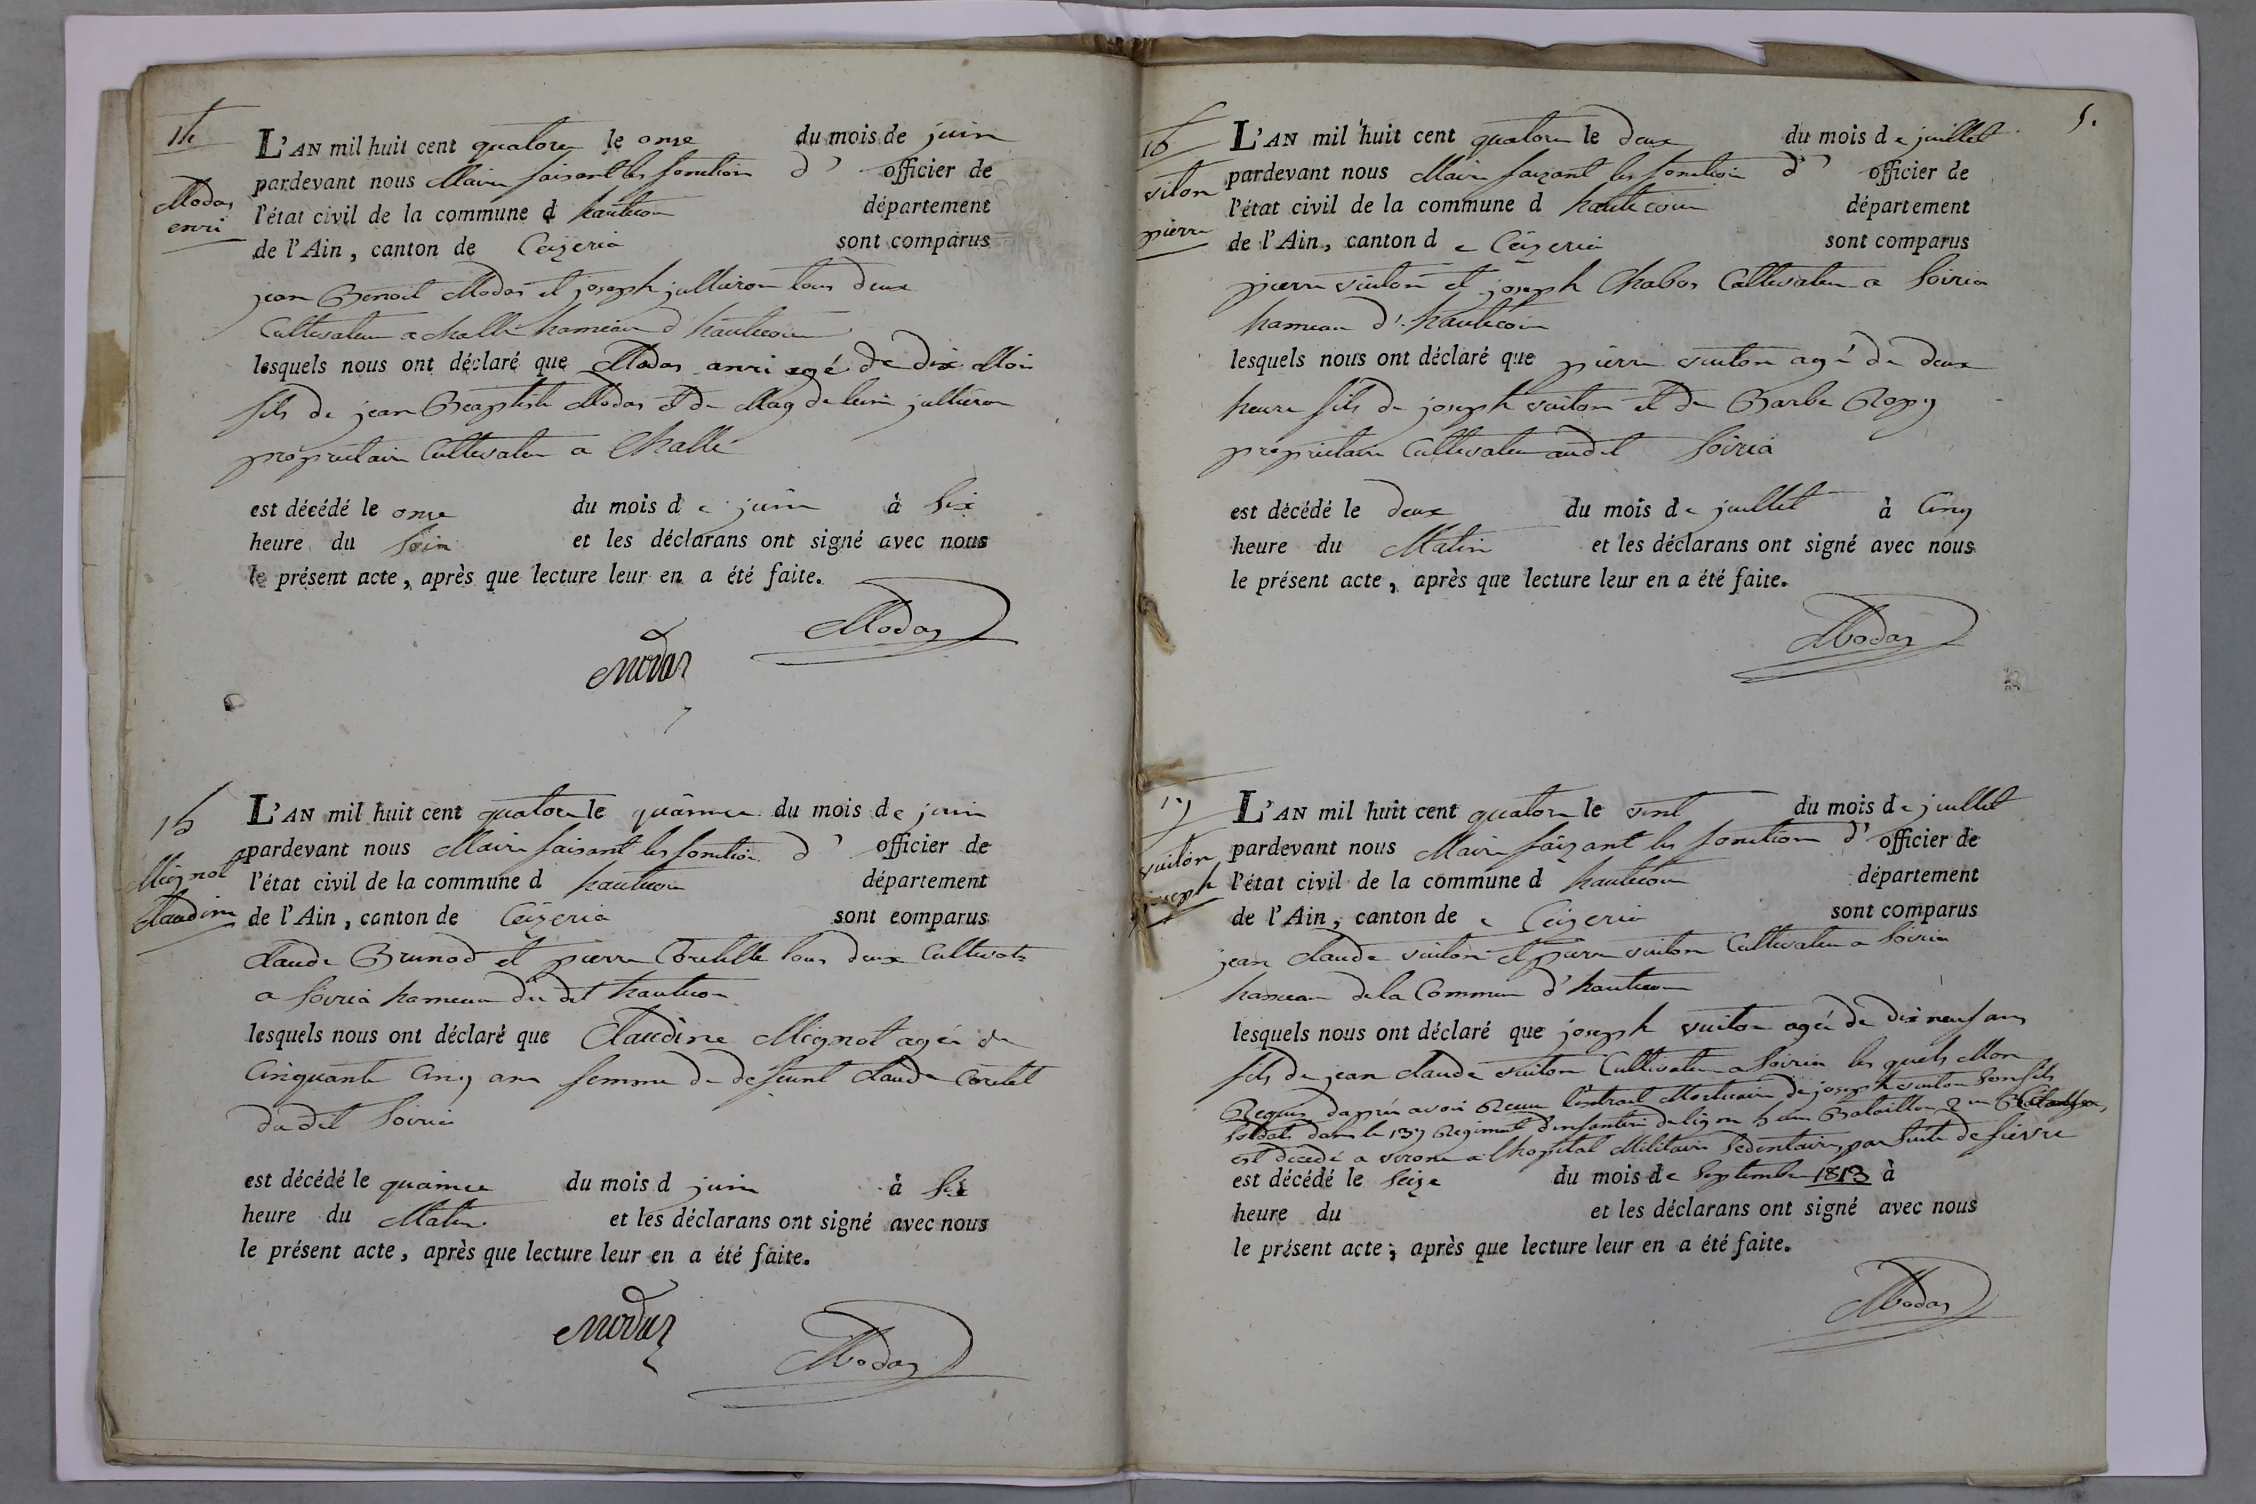 14
Modas
enri
L'AN mil huit cent quatorze le onze du mois de juin
pardevant nous Maire faisant les fonction d' officier de
l'état civil de la commune d hautecour département
de l'Ain, canton de Ceÿzeria sont comparus
jean Benoit Modas et joseph jullieron tous deux
Cultivateur a challe hameau d'hautecour
lesquels nous ont déclaré que Modas anri agé de dix Moi
fils de jean Beaptiste Modas et de Magdeleine jullieron
propriétaire Cultivateur a Challe
est décédé le onze du mois de juin à Six
heure du Soir et les déclarans ont signé avec nous
le présent acte, après que lecture leur en a été faite.
Modas
Modas
15
Mignot
Claudine
L'AN mil huit cent quatorze le quainze du mois de juin
pardevant nous Maire faisant les fonction d' officier de
l'état civil de la commune d hautecour département
de l'Ain, canton de Ceÿzeria sont comparus
Claude Brunod et pierre Coretelle tous deux Cultivate
a Soiria hameau du dit hautecour
lesquels nous ont déclaré que Claudine Mignot agée de
Cinquante Cinq ans femme de defeunt Claude Coretet
du dit Soiria
est décédé le quainze du mois d juin à Six
heure du Matin et les déclarans ont signé avec nous
le présent acte, après que lecture leur en a été faite.
Modas
Modas
5.
16
viton
pierre
L'AN mil huit cent quatorze le deux du mois de juillet
pardevant nous Maire faizant les fonction d' officier de
l'état civil de la commune d hautecour département
de l'Ain, canton de Ceÿzeria sont comparus
pierre vuiton et joseph Chabos Cultivateur a Soiria
hameau d'hautecour
lesquels nous ont déclaré que pierre vuiton agé de deux
heure fils de joseph vuiton et de Barbe
propriétaire Cultivateur audit Soiria
est décédé le deux du mois de juillet à Cinq
heure du Matin et les déclarans ont signé avec nous
le présent acte, après que lecture leur en a été faite.
Modas
17
vuiton
joseph
L'AN mil huit cent quatorze le vint du mois de juillet
pardevant nous Maire faizant les fonction d' officier de
l'état civil de la commune d hautecour département
de l'Ain, canton de Ceÿzeria sont comparus
jean Claude vuiton et pierre vuiton Cultivateur a Soiria
hameau de la Commune d'hautecour
lesquels nous ont déclaré que joseph vuiton agé de dix neuf ans
fils de jean Claude vuiton Cultivateur a Soiria les quels Mon
Requis daprés avoir Recu l'extrait Mortuaire de joseph vuiton son fils
Soldat dans le 137 Regiment d'infanterie de lign 5 em Bataillon 2 em
est décedé a verone a lhopital Militaire Sedentaire par Suite de fièvre
est décédé le Seize du mois de Septembre 1813 à
heure du et les déclarans ont signé avec nous
le présent acte, après que lecture leur en a été faite.
Modas